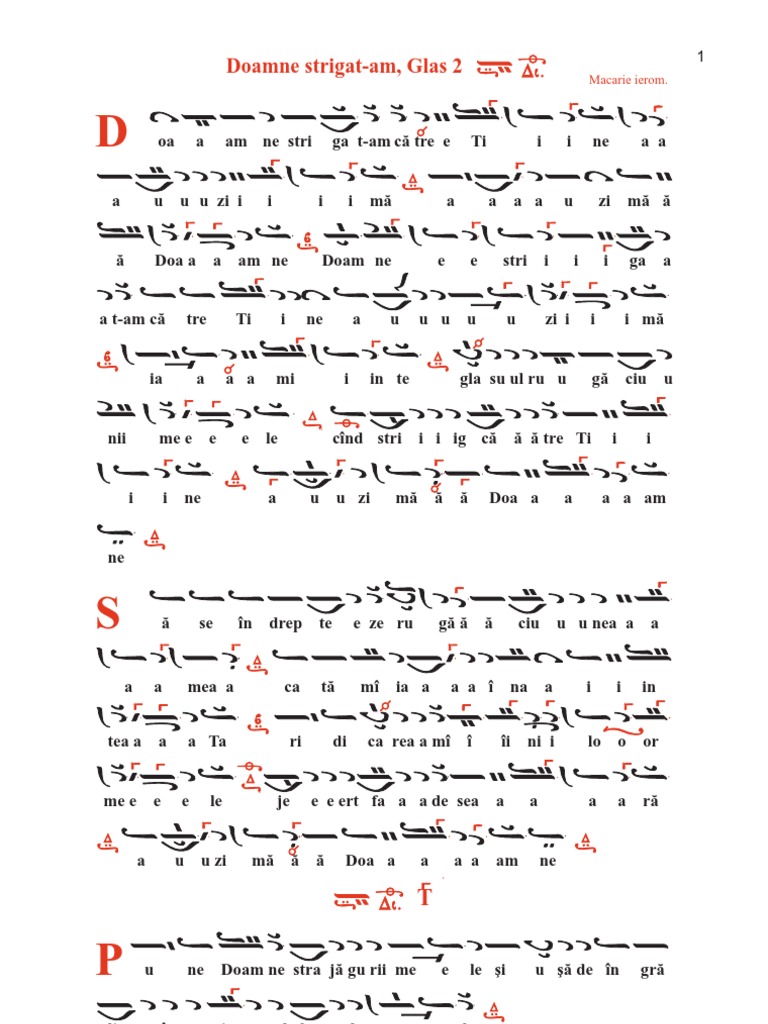 1
Doamne strigat-am, Glas 2
Macarie ierom.
D oa a am ne stri ga t-am că tre e Ti i i ne a a
a u u u zi i i i i mă a a a a u zi mă ă
ă Doa a a am ne Doam ne e e stri i i i ga a
a t-am că tre Ti i ne a u u u u u zi i i i mă
ia a a a mi i in te gla su ul ru u gă ciu u
nii me e e e le cînd stri i i ig că ă ă tre Ti i i
i i ne a u u zi mă ă ă Doa a a a a am
ne
S ă se în drep te e ze ru gă ă ă ciu u u nea a a
a a mea a ca tă mî ia a a a î na a i i in
tea a a a Ta ri di ca rea a mî î îi ni i lo o or
me e e e le je e e ert fa a a de sea a a a a ră
a u u zi mă ă ă Doa a a a a am ne
P u ne Doam ne stra jă gu rii me e le şi u şă de în gră